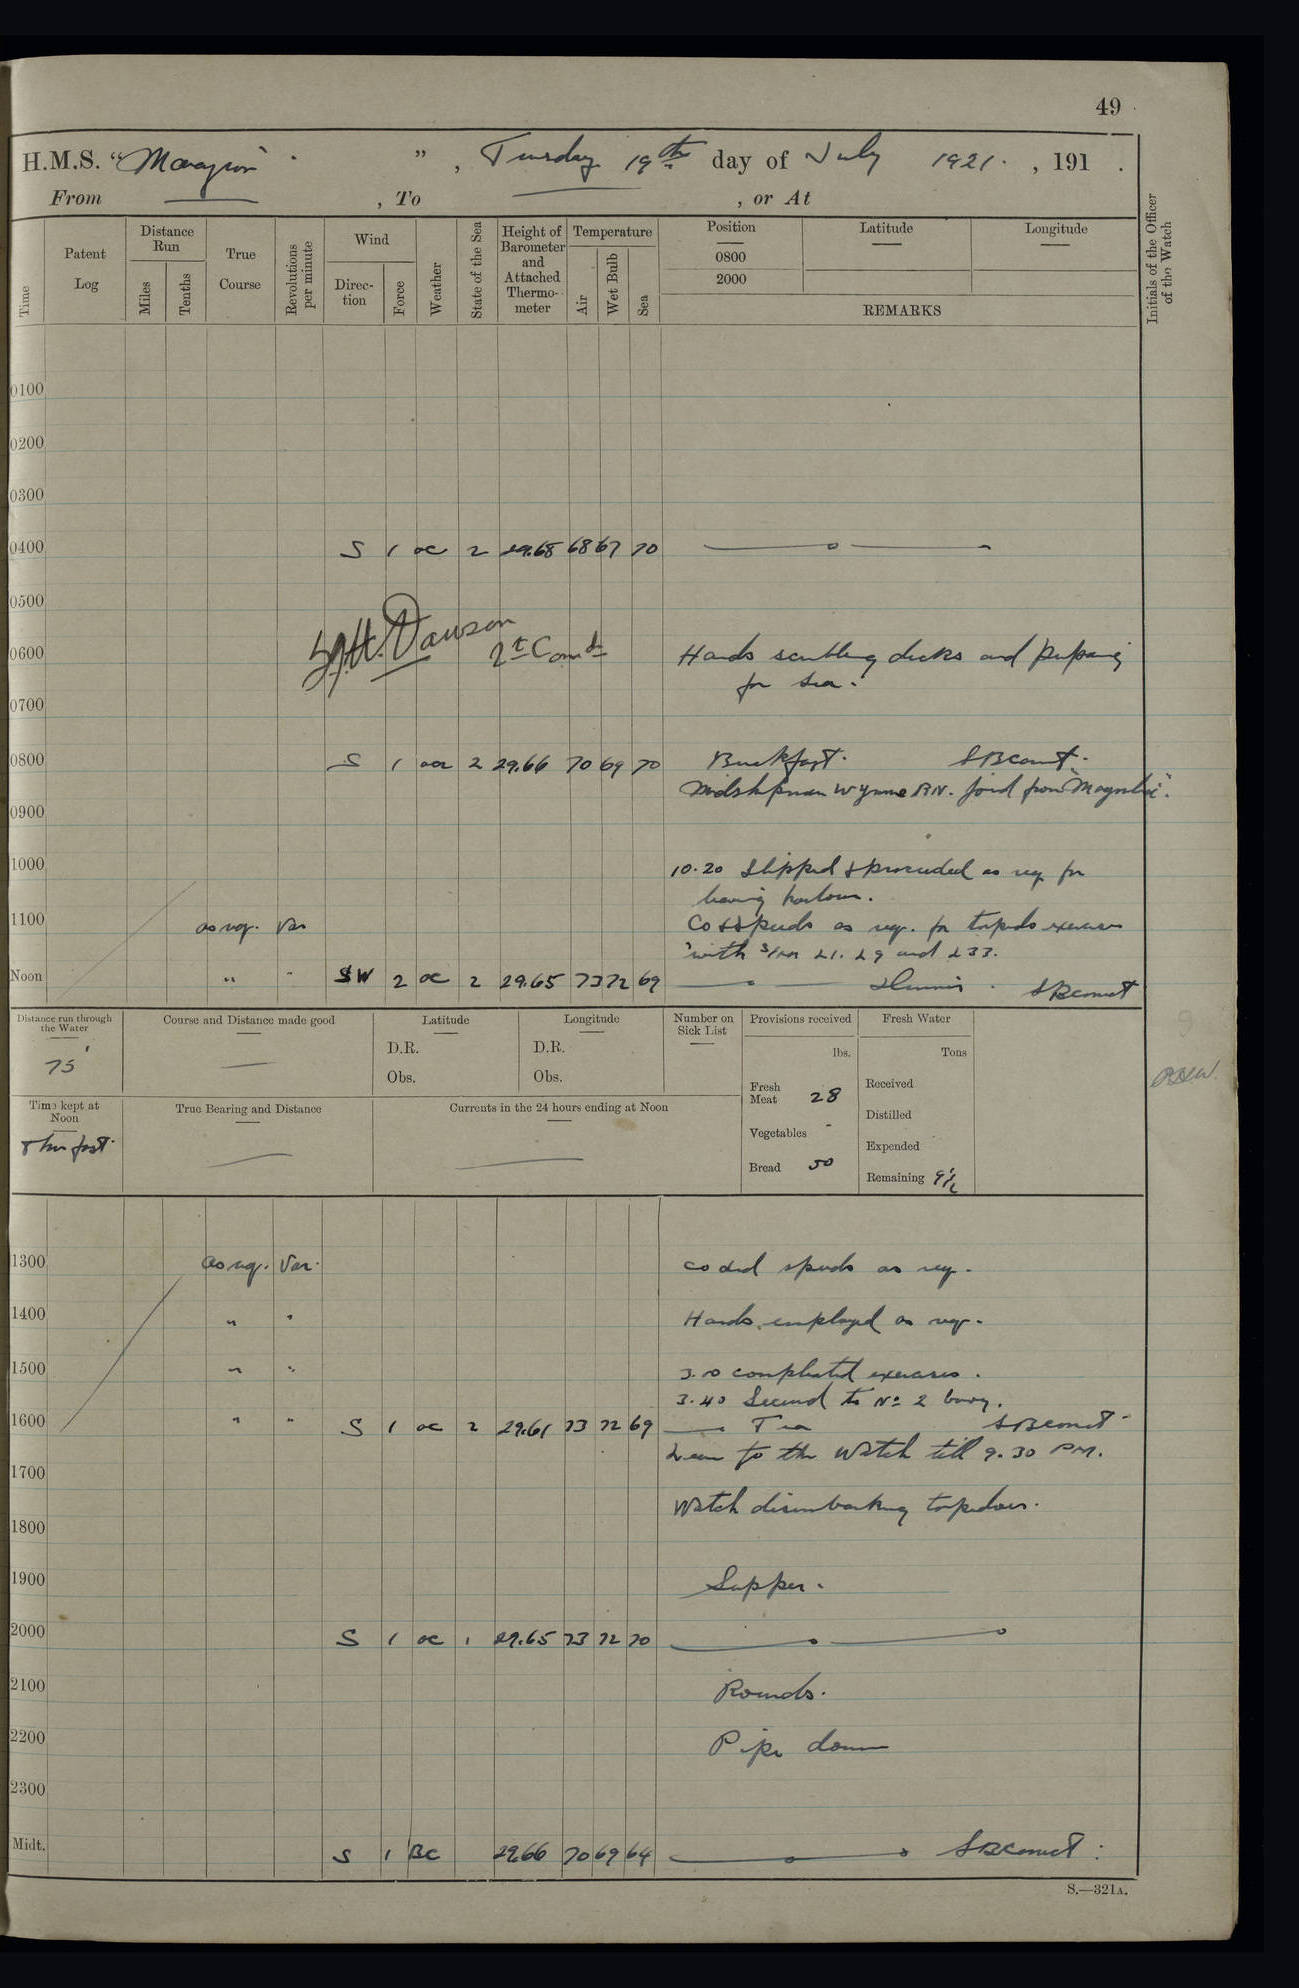 49
H.M.S. "Marazion" , Tuesday 19th day of July 1921. , 191 .
From — , To — , or At
Time
Patent Log
Distance Run
Miles
Tenths
True Course
Revolutions per minute
Wind
Direction
Force
Weather
State of the Sea
Height of Barometer and Attached Thermometer
Temperature
Air
Wet Bulb
Sea
Position
0800
2000
Latitude
Longitude
REMARKS
Initials of the Officer of the Watch
0100
0200
0300
0400 S 1 oc 2 29.68 68 67 70
0500
Dawson
0600 Lt Comd Hands scrubbing decks and preparing
for sea.
0700
0800 S 1 2 29.66 70 69 70 Breakfast.
Midshipman Wynne RN. joind from "Magnolia".
0900
1000 10.20 Slipped & proceeded as req for
leaving harbour.
1100 as req. Var Co & Speeds as req. for torpedo exercises
with S/ms L1. L9 and L33.
Noon " " SW 2 oc 2 29.65 73 72 69 Dinner
Distance run through the Water
75'
Course and Distance made good
—
Latitude
D.R.
Obs.
Longitude
D.R.
Obs.
Number on Sick List
Provisions received
lbs.
Fresh Meat 28
Vegetables -
Bread 50
Fresh Water
Tons
Received
Distilled
Expended
Remaining 9½
Time kept at Noon
True Bearing and Distance
—
Currents in the 24 hours ending at Noon
—
1300 as req. Var. Co and speeds as req.
1400 " " Hands employed as req.
1500 " " 3.0 completed exercises.
3.40 Secured to No 2 buoy.
1600 " " S 1 oc 2 29.61 73 72 69 Tea
Leave to the Watch till 9.30 PM.
1700
Watch disembarking torpedoes.
1800
1900 Supper.
2000 S 1 oc 1 29.65 73 72 70
2100 Rounds.
2200 Pipe down
2300
Midt. S 1 BC 29.66 70 69 64
S.—321A.